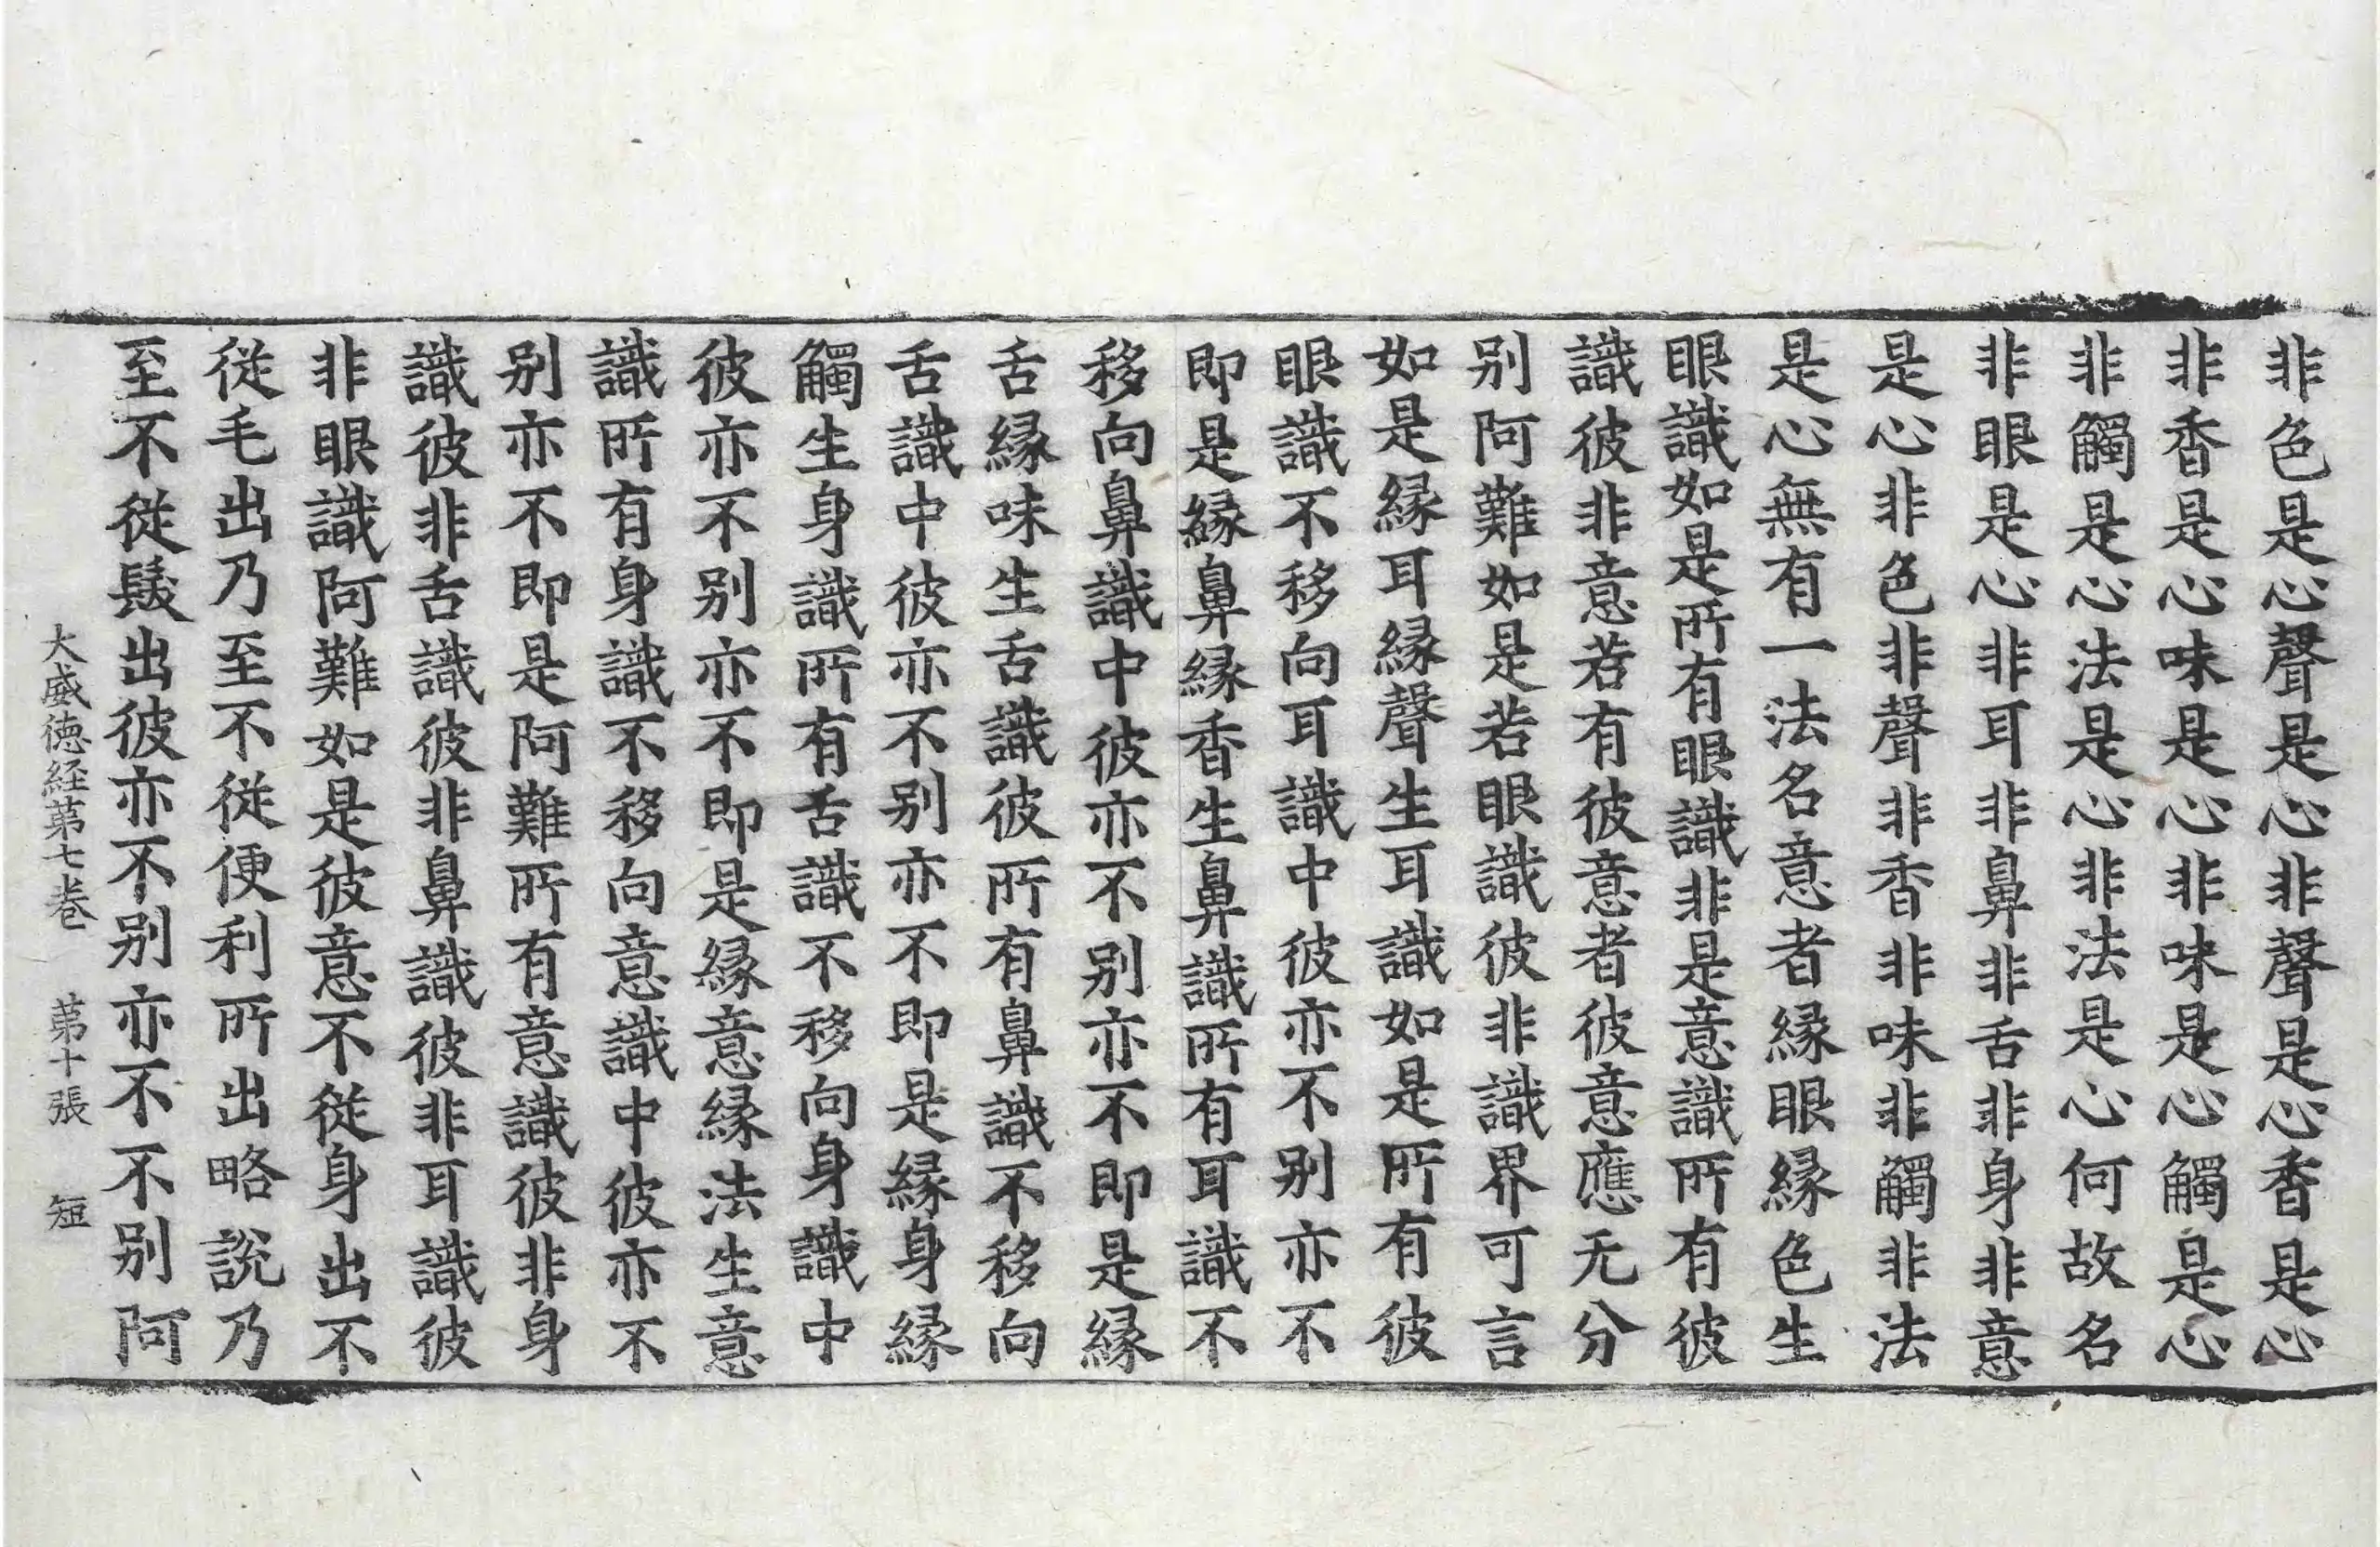 非色是心聲是心非聲是心香是心
非香是心味是心非味是心觸是心
非觸是心法是心非法是心何故名
非眼是心非耳非鼻非舌非身非意
是心非色非聲非香非味非觸非法
是心無有一法名意者緣眼緣色生
眼識如是所有眼識非是意識所有彼
識彼非意若有彼意者彼意應无分
別阿難如是若眼識彼非識界可言
如是緣耳緣聲生耳識如是所有彼
眼識不移向耳識中彼亦不別亦不
即是緣鼻緣香生鼻識所有耳識不
移向鼻識中彼亦不別亦不即是緣
舌緣味生舌識彼所有鼻識不移向
舌識中彼亦不別亦不即是緣身緣
觸生身識所有舌識不移向身識中
彼亦不別亦不即是緣意緣法生意
識所有身識不移向意識中彼亦不
別亦不即是阿難所有意識彼非身
識彼非舌識彼非鼻識彼非耳識彼
非眼識阿難如是彼意不從身出不
從毛出乃至不從便利所出略說乃
至不從髮出彼亦不別亦不不別阿
大威德経第七卷 第十張 短